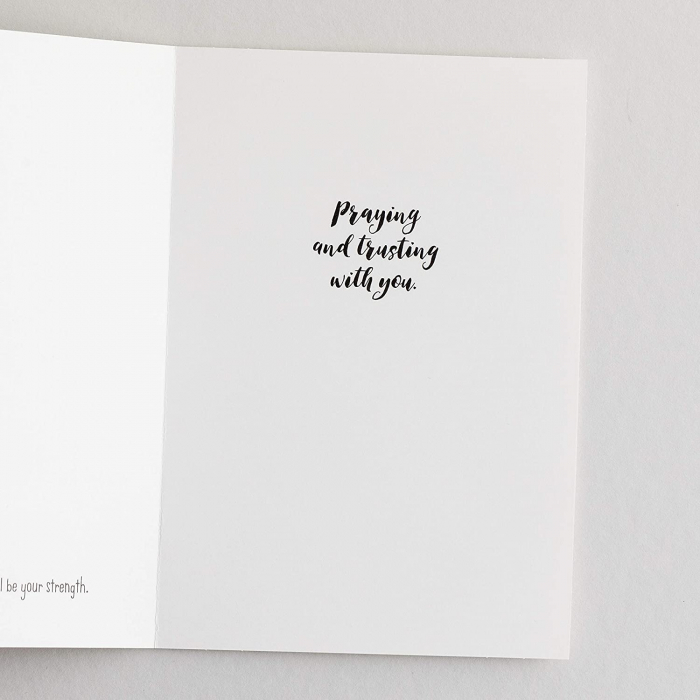 Praying
and trusting
with you.
be your strength.